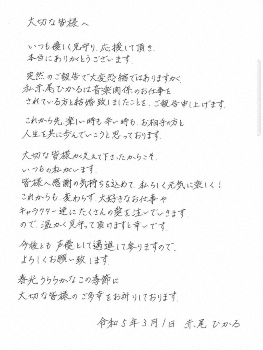 大切な皆様へ
いつも優しく見守り、応援して頂き
本当にありがとうございます。
突然のご報告で大変恐縮ではありますが、
私赤尾ひかるは音楽関係のお仕事を
されている方と結婚致しましたことを、ご報告申し上げます。
これから先、楽しい時も辛い時も、お相手の方と
人生を共に歩んでいこうと思っております。
大切な皆様が支えて下さったからこそ、
いつもの私がいます。
皆様へ感謝の気持ちを込めて、私らしく元気に楽しく！
これからも変わらず、大好きなお仕事や
キャラクター達にたくさんの愛を注いでいきます
ので、温かく見守って頂けますと幸いです。
今後とも声優として邁進して参りますので、
よろしくお願い致します。
春光うららかなこの季節に
大切な皆様のご多幸をお祈りしております。
令和5年3月1日 赤尾ひかる